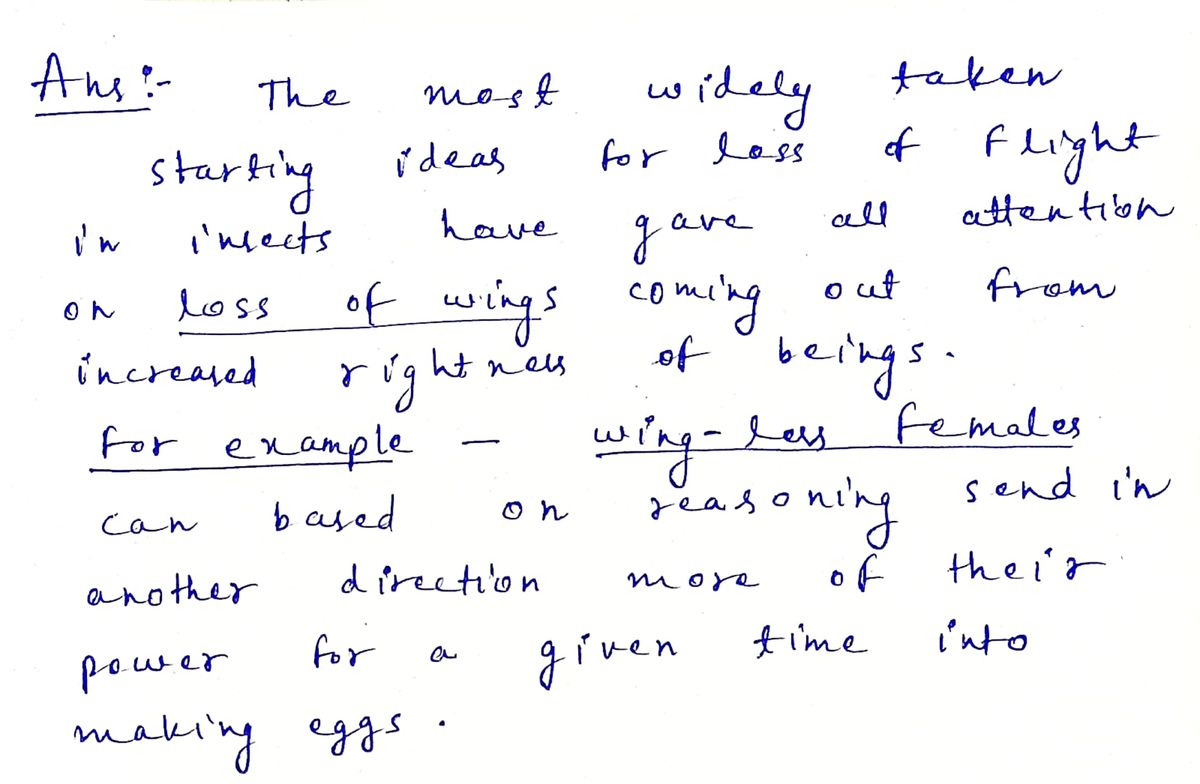 Ans:- The most widely taken
starting ideas for loss of flight
in insects have gave all attention
on loss of wings coming out from
increased rightness of beings.
for example - wing-less females
can based on reasoning send in
another direction more of their
power for a given time into
making eggs.